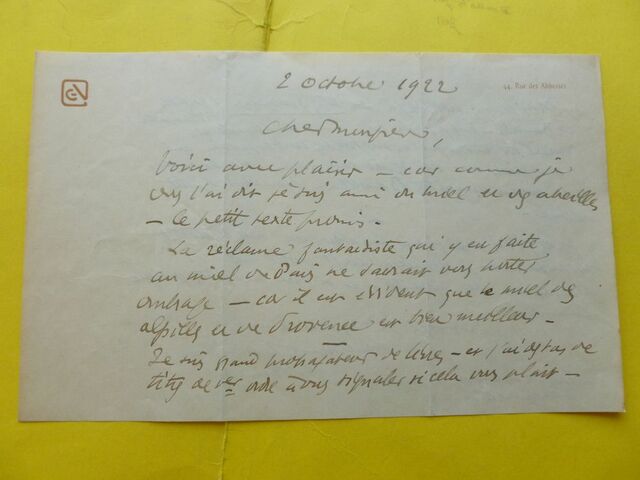 44, Rue des Abbesses
2 Octobre 1922
Cher Monsieur,
Voici avec plaisir – car comme je
vous l'ai dit je suis ami du miel et des abeilles
– le petit texte promis –
La réclame fantaisiste qui y est faite
au miel de Paris ne saurait vous porter
ombrage – car il est évident que le miel des
alpilles et de Provence est bien meilleur –
Je suis grand propagateur de livres – et j'ai des tas de
titres de 1er ordre à vous signaler si cela vous plait –